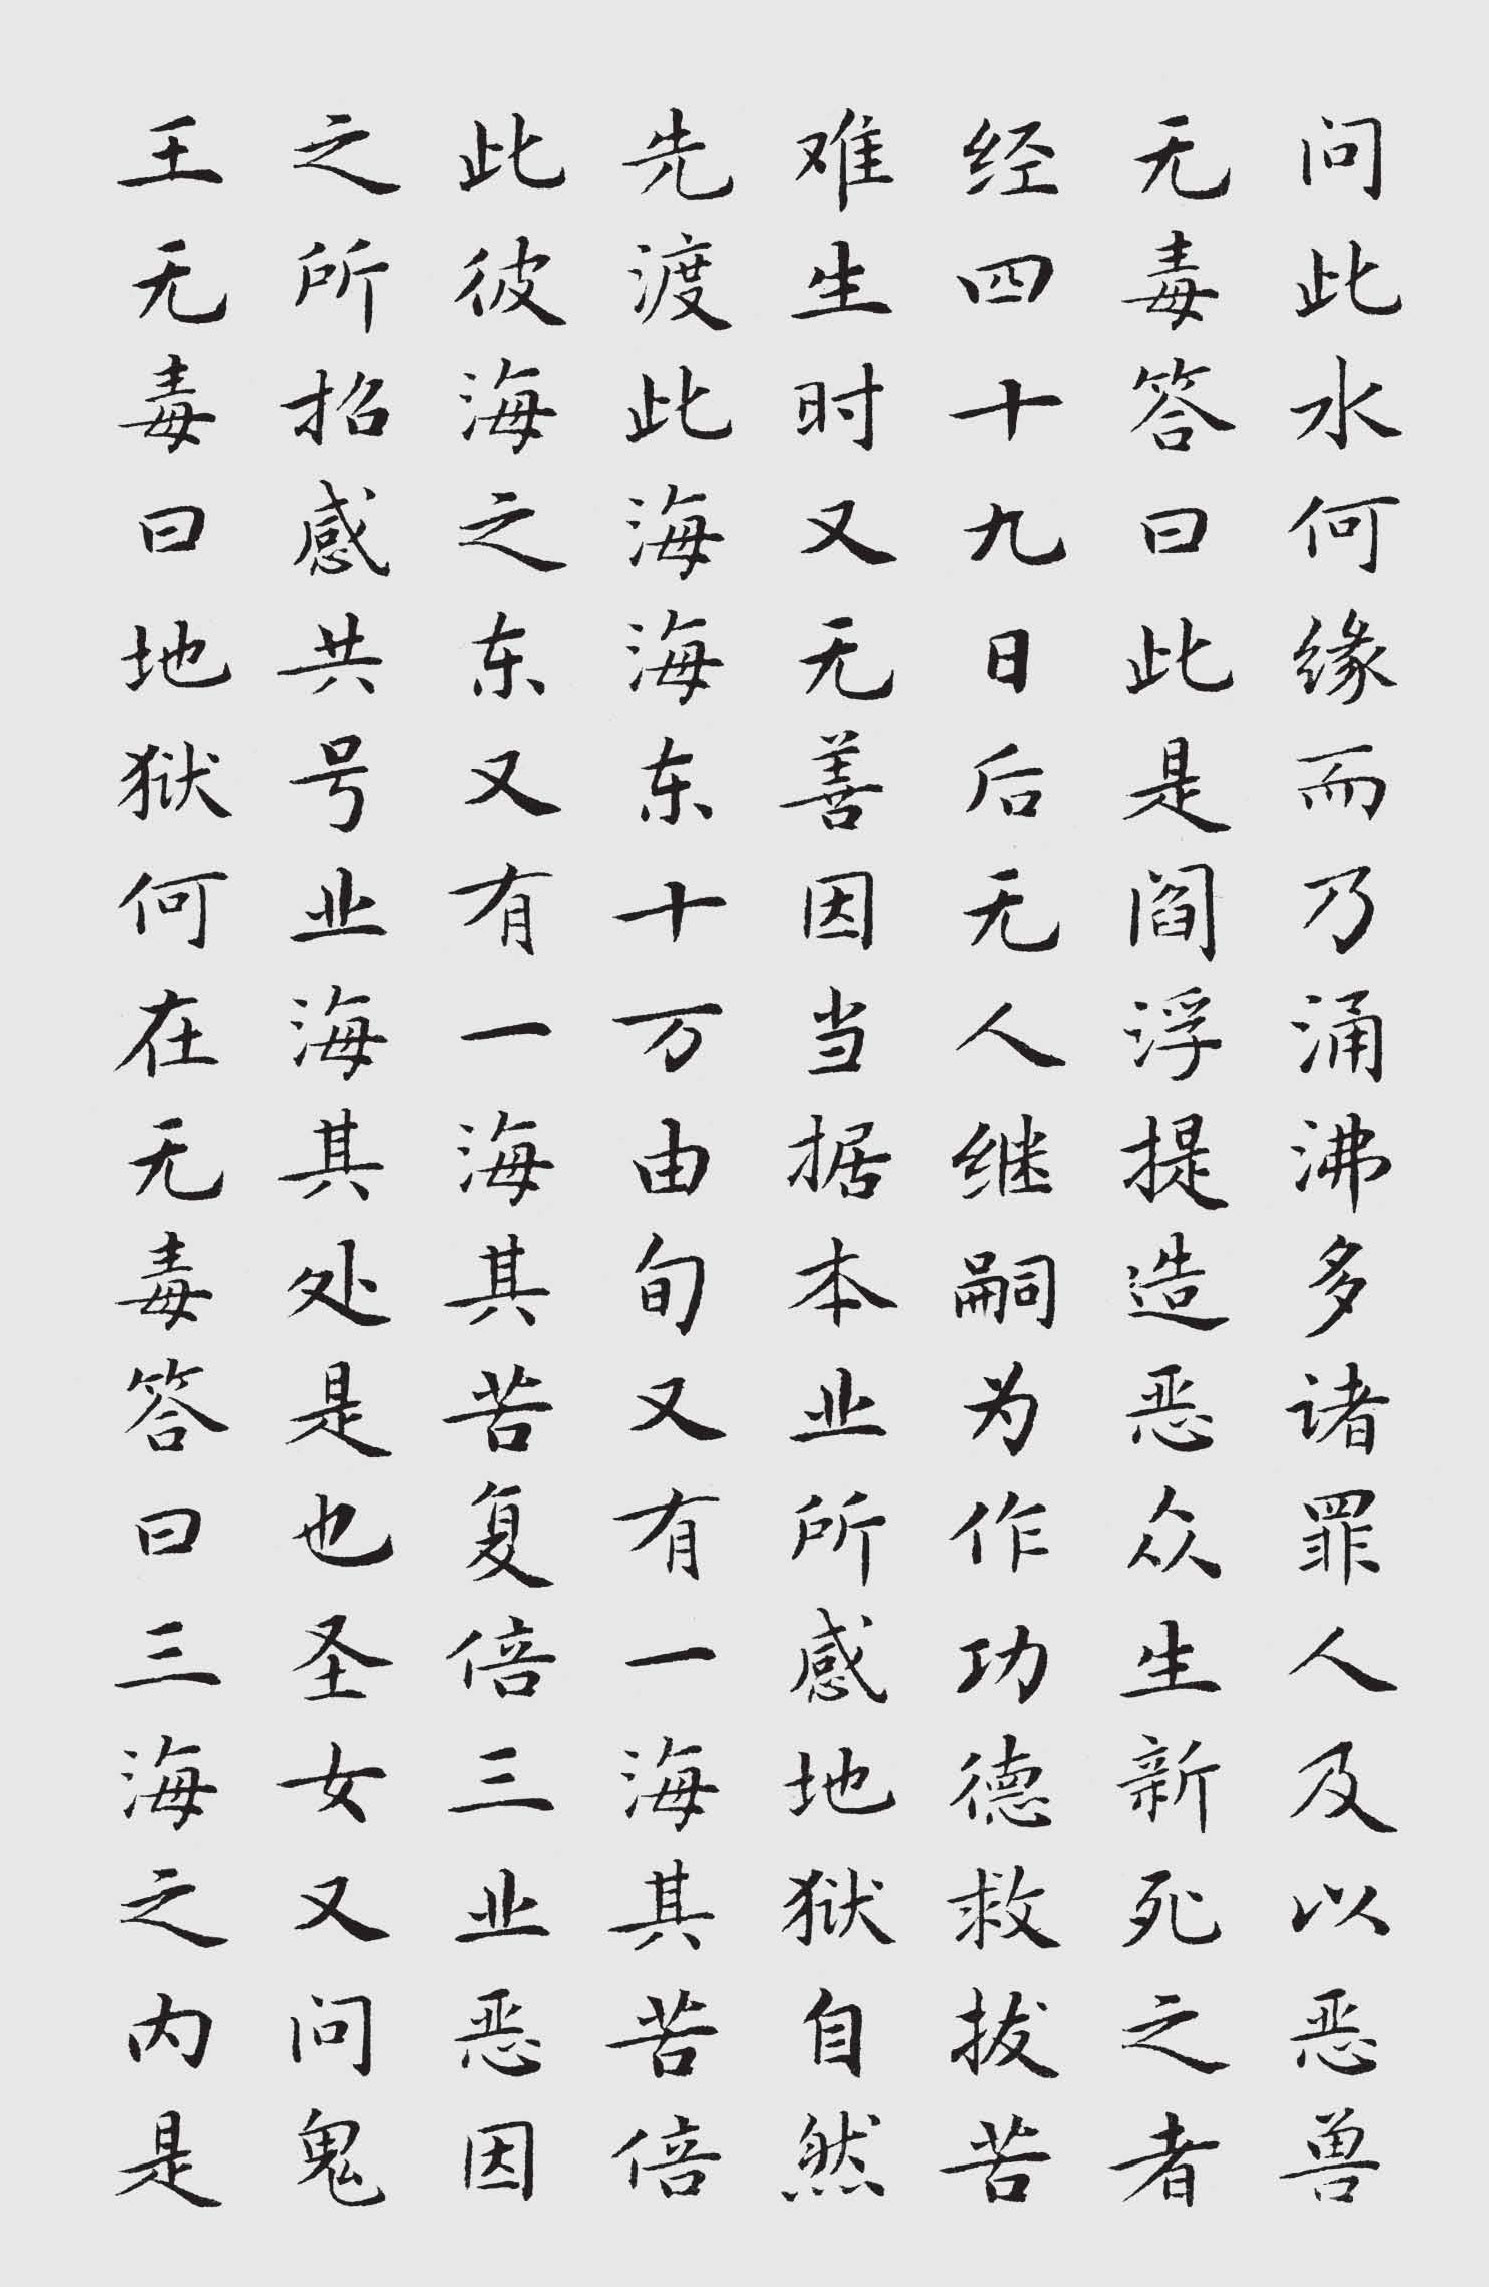 问此水何缘而乃涌沸多诸罪人及以恶兽
无毒答曰此是阎浮提造恶众生新死之者
经四十九日后无人继嗣为作功德救拔苦
难生时又无善因当据本业所感地狱自然
先渡此海海东十万由旬又有一海其苦倍
此彼海之东又有一海其苦复倍三业恶因
之所招感共号业海其处是也圣女又问鬼
王无毒曰地狱何在无毒答曰三海之内是